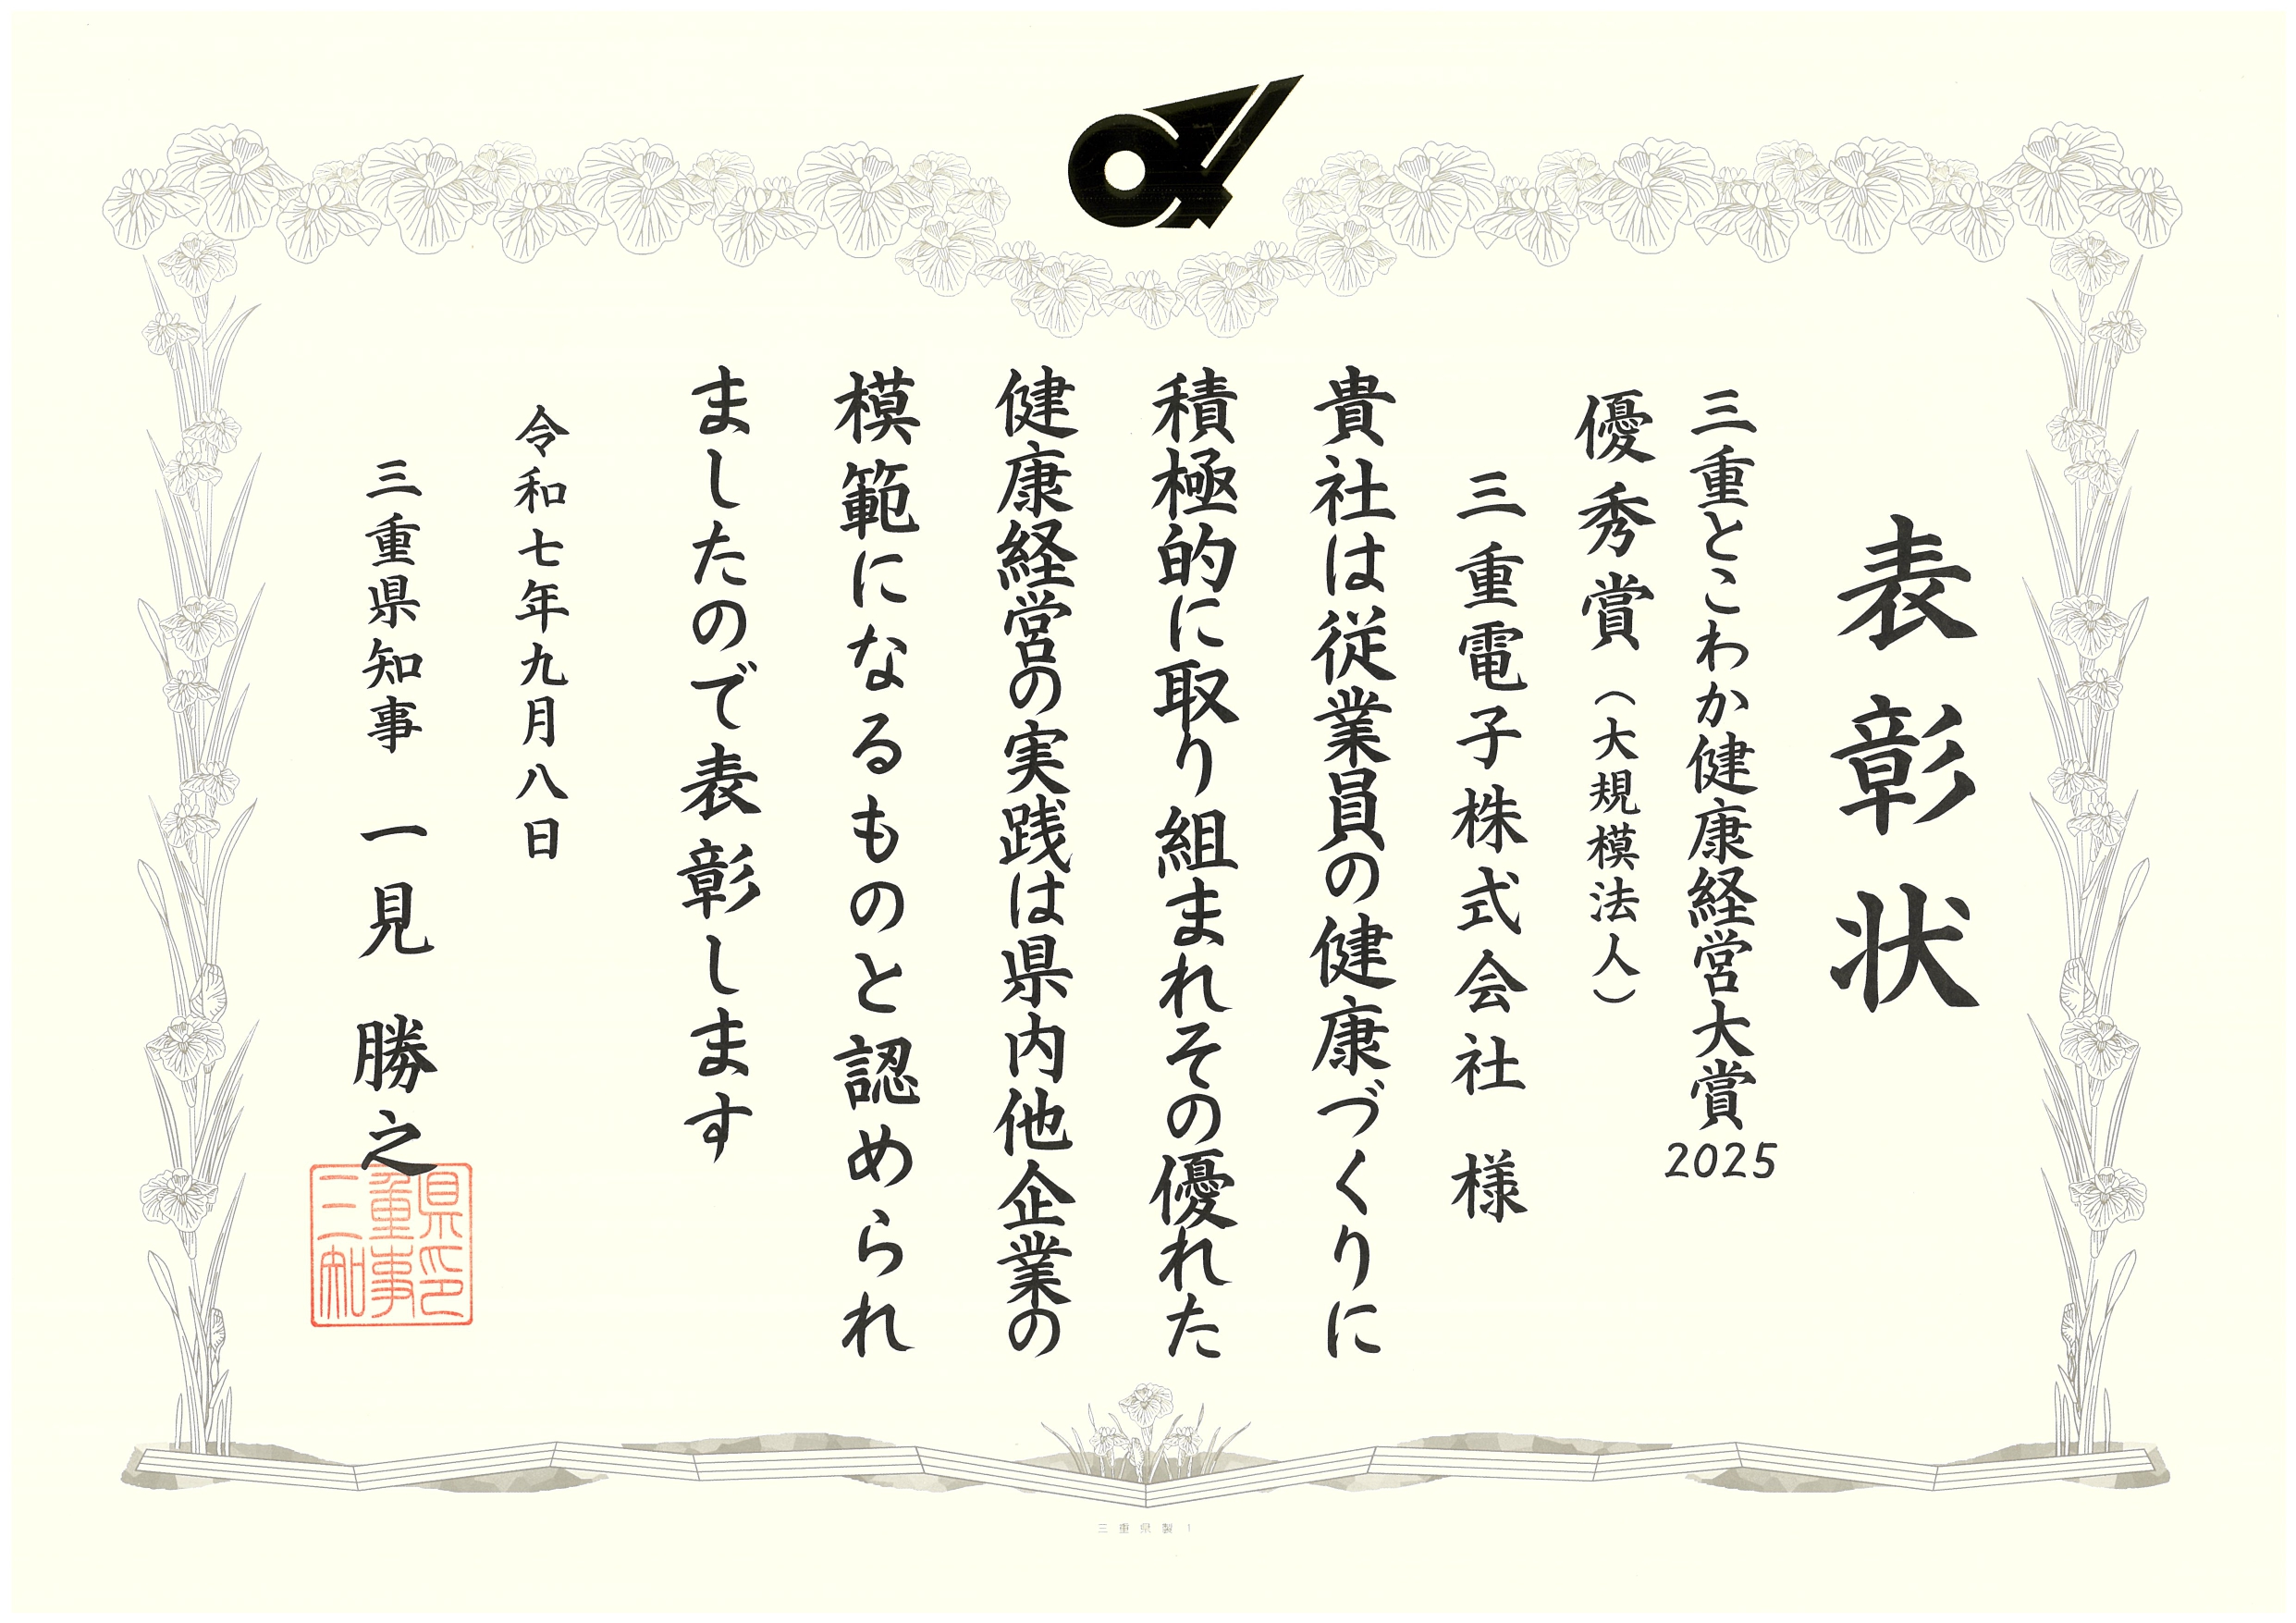 表彰状
三重とこわか健康経営大賞2025
優秀賞（大規模法人）
三重電子株式会社 様
貴社は従業員の健康づくりに
積極的に取り組まれその優れた
健康経営の実践は県内他企業の
模範になるものと認められ
ましたので表彰します
令和七年九月八日
三重県知事 一見 勝之
三重県知事印
三重県製1